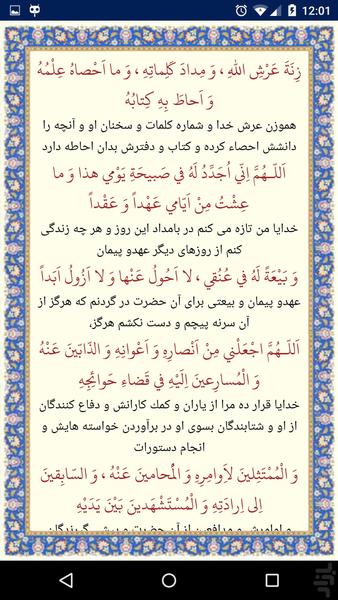 12:01
زِنَةَ عَرْشِ اللهِ ، وَ مِدادَ كَلِماتِهِ ، وَ ما اَحْصاهُ عِلْمُهُ
وَ اَحاطَ بِهِ كِتابُهُ
هموزن عرش خدا و شماره كلمات و سخنان او و آنچه را
دانشش احصاء كرده و كتاب و دفترش بدان احاطه دارد
اَللــهُمَّ اِنّي اُجَدِّدُ لَهُ في صَبيحَةِ يَوْمي هذا وَ ما
عِشْتُ مِنْ اَيّامي عَهْداً وَ عَقْداً
خدايا من تازه مى كنم در بامداد اين روز و هر چه زندگى
كنم از روزهاى ديگر عهدو پيمان
وَ بَيْعَةً لَهُ في عُنُقي ، لا اَحُولُ عَنْها وَ لا اَزُولُ اَبَداً
عهدو پيمان و بيعتى براى آن حضرت در گردنم كه هرگز از
آن سرنه پيچم و دست نكشم هرگز،
اَللــهُمَّ اجْعَلْني مِنْ اَنْصارِهِ وَ اَعْوانِهِ وَ الذّابّينَ عَنْهُ
وَ الْمُسارِعينَ اِلَيْهِ في قَضاءِ حَوائِجِهِ
خدايا قرار ده مرا از ياران و كمك كارانش و دفاع كنندگان
از او و شتابندگان بسوى او در برآوردن خواسته هايش و
انجام دستورات
وَ الْمُمْتَثِلينَ لاَِوامِرِهِ وَ الُْمحامينَ عَنْهُ ، وَ السّابِقينَ
اِلى اِرادَتِهِ وَ الْمُسْتَشْهَدينَ بَيْنَ يَدَيْهِ
و اوامرش و مدافعين از آن حضرت و پيشى گيرندگان
بازار